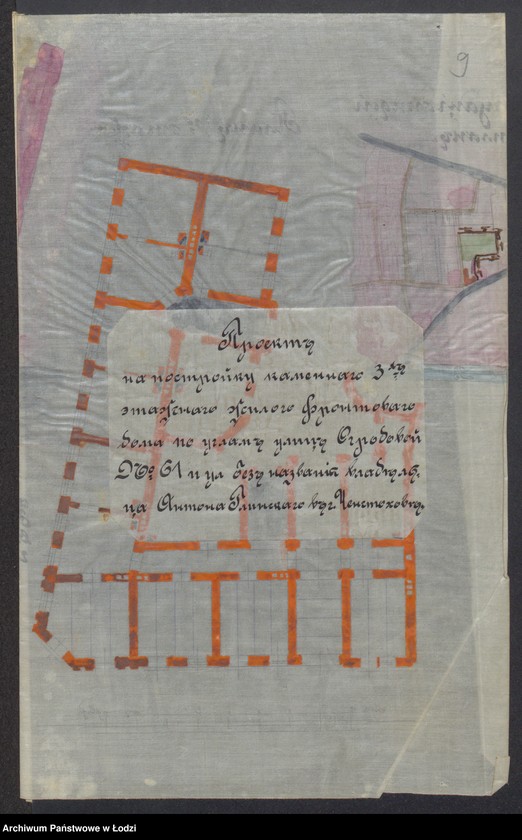 9
Проектъ
на постройку каменнаго 3хъ
этажнаго жилого фронтоваго
дома по угламъ улицъ Огродовой
№ 61 и ул безъ названія владѣль,
ца Антона Глинскаго въ г. Ченстоховѣ,
Archiwum Państwowe w Łodzi